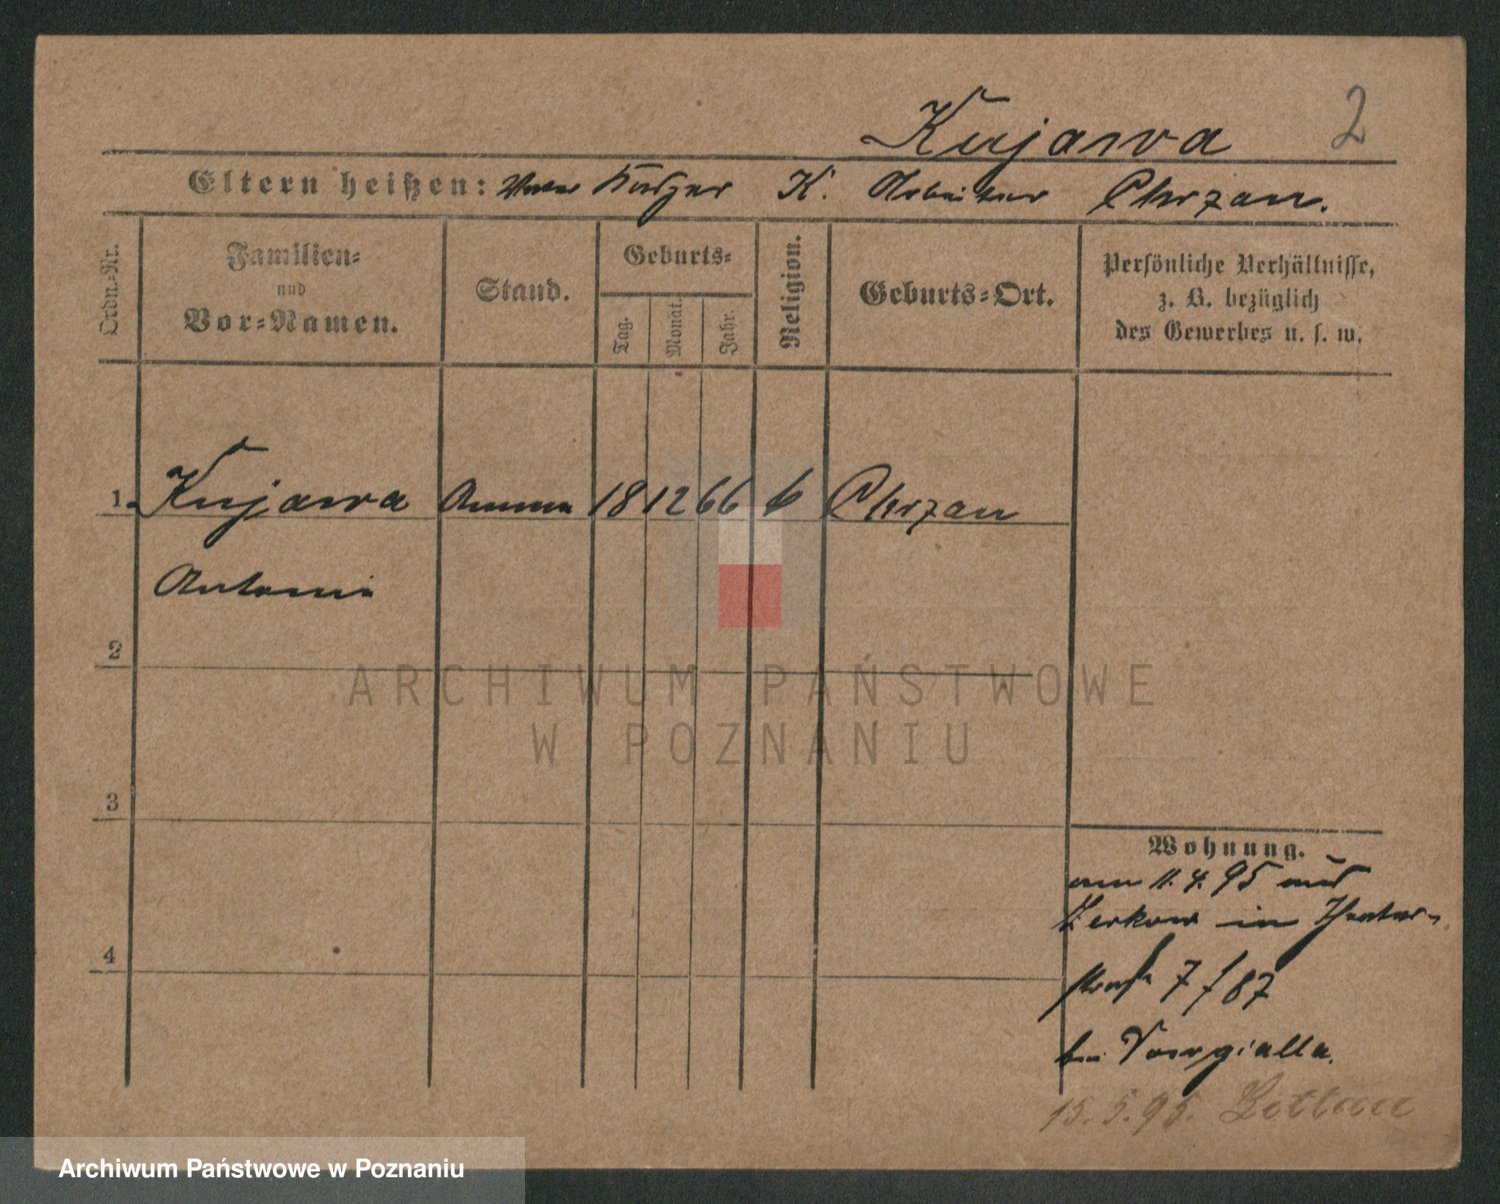 Kujawa
2
Eltern heißen: Vater Kasper K. Arbeiter Chrzan.
Ordn.-Nr.
Familien-
und
Vor-Namen.
Stand.
Geburts-
Tag.
Monat.
Jahr.
Religion.
Geburts-Ort.
Persönliche Verhältnisse,
z. B. bezüglich
des Gewerbes u. s. w.
1. Kujawa Amme 18 12 66 k Chrzan
Antonie
2
ARCHIWUM PAŃSTWOWE
W POZNANIU
3
4
Wohnung.
am 11.4.95 aus
Zerkow in Theater-
straße 7 / 87
bei
15.5.95. Zottau
Archiwum Państwowe w Poznaniu